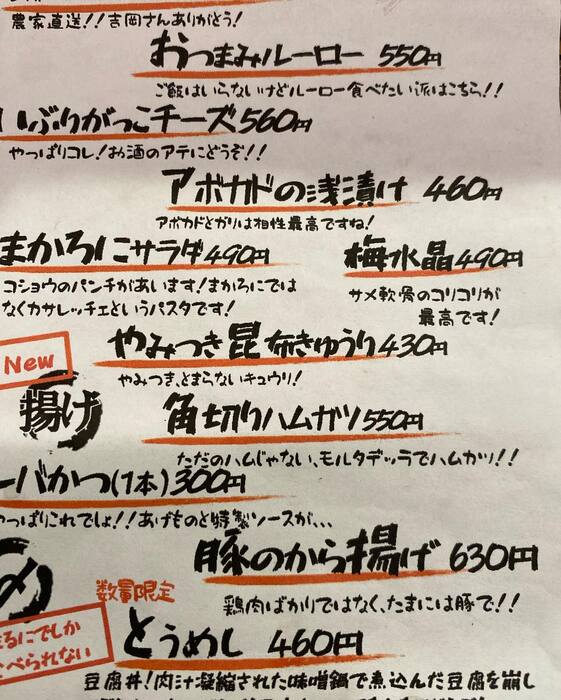 農家直送!!吉岡さんありがとう!
おつまみルーロー 550円
ご飯はいらないけどルーロー食べたい派はこちら!!
いぶりがっこチーズ 560円
やっぱりコレ!お酒のアテにどうぞ!!
アボカドの浅漬け 460円
アボカドとガリは相性最高ですね!
まかろにサラダ 490円
梅水晶 490円
コショウのパンチがあいます!まかろにでは
なくカサレッチェというパスタです!
サメ軟骨のコリコリが
最高です!
New
やみつき昆布きゅうり 430円
やみつき、とまらないキュウリ!
揚げ
角切りハムカツ 550円
ただのハムじゃない、モルタデッラでハムカツ!!
ーバかつ(1本) 300円
やっぱりこれでしょ!!あげものと特製ソースが、、、
豚のから揚げ 630円
鶏肉ばかりではなく、たまには豚で!!
〆
数量限定
とうめし 460円
るにでしか
べられない
豆腐丼!肉汁凝縮された味噌鍋で煮込んだ豆腐を崩し